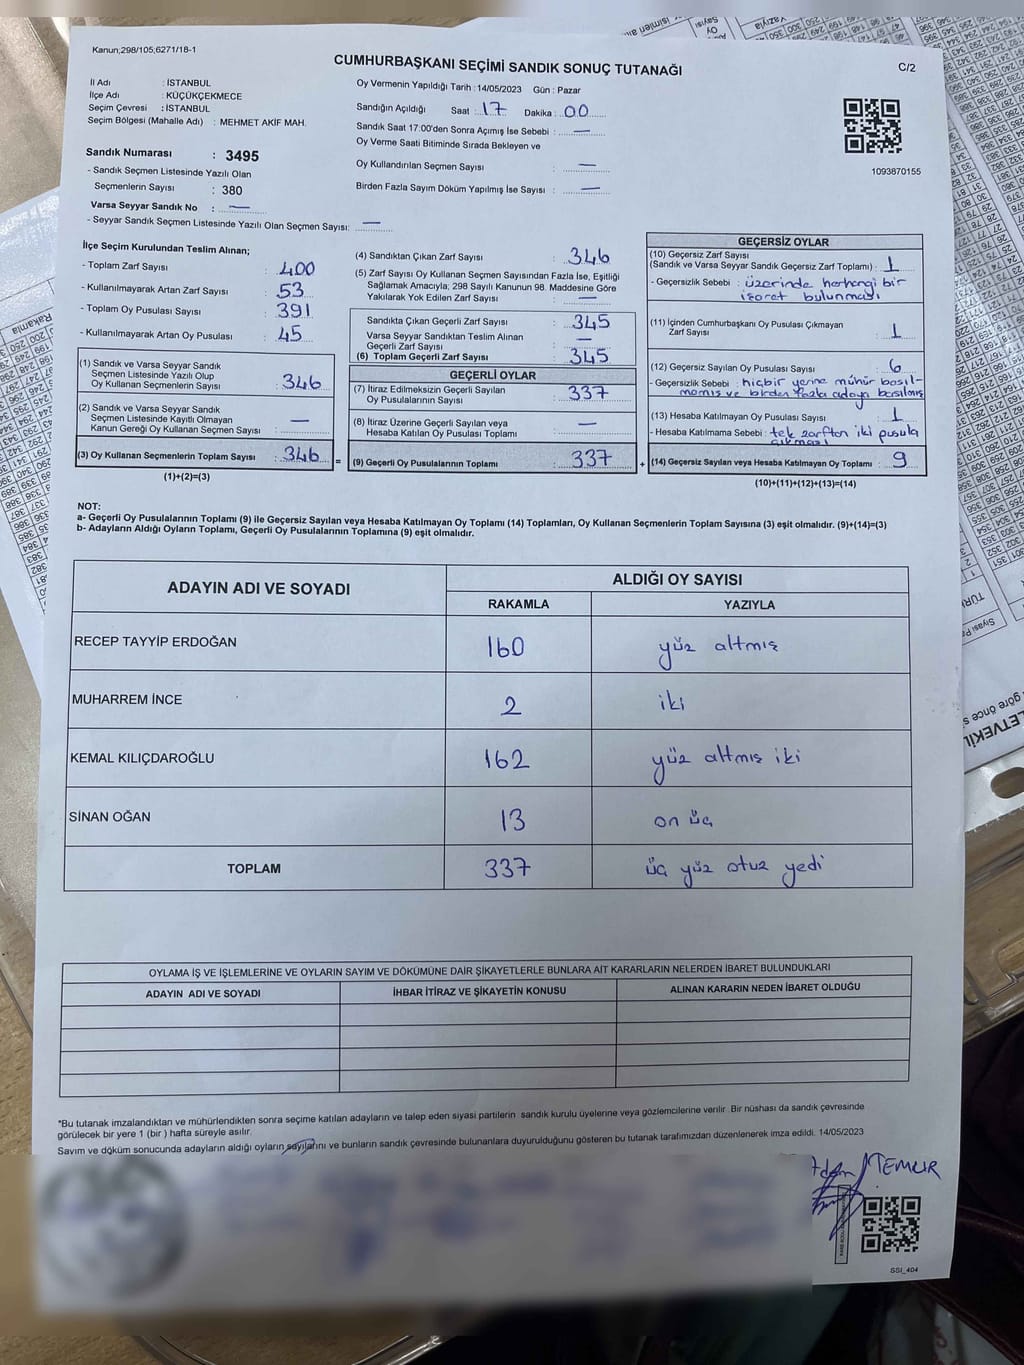 Kanun;298/105;6271/18-1
CUMHURBAŞKANI SEÇİMİ SANDIK SONUÇ TUTANAĞI
C/2
İl Adı : İSTANBUL
İlçe Adı : KÜÇÜKÇEKMECE
Seçim Çevresi : İSTANBUL
Seçim Bölgesi (Mahalle Adı) : MEHMET AKİF MAH.
Sandık Numarası : 3495
- Sandık Seçmen Listesinde Yazılı Olan
Seçmenlerin Sayısı : 380
Varsa Seyyar Sandık No : —
- Seyyar Sandık Seçmen Listesinde Yazılı Olan Seçmen Sayısı: —
Oy Vermenin Yapıldığı Tarih : 14/05/2023 Gün : Pazar
Sandığın Açıldığı Saat : 17 Dakika : 00
Sandık Saat 17:00'den Sonra Açımış İse Sebebi : —
Oy Verme Saati Bitiminde Sırada Bekleyen ve
Oy Kullandırılan Seçmen Sayısı : —
Birden Fazla Sayım Döküm Yapılmış İse Sayısı : —
1093870155
İlçe Seçim Kurulundan Teslim Alınan;
- Toplam Zarf Sayısı : 400
- Kullanılmayarak Artan Zarf Sayısı : 53
- Toplam Oy Pusulası Sayısı : 391
- Kullanılmayarak Artan Oy Pusulası : 45
(1) Sandık ve Varsa Seyyar Sandık
Seçmen Listesinde Yazılı Olup
Oy Kullanan Seçmenlerin Sayısı : 346
(2) Sandık ve Varsa Seyyar Sandık
Seçmen Listesinde Kayıtlı Olmayan
Kanun Gereği Oy Kullanan Seçmen Sayısı : —
(3) Oy Kullanan Seçmenlerin Toplam Sayısı : 346 =
(1)+(2)=(3)
(4) Sandıktan Çıkan Zarf Sayısı : 346
(5) Zarf Sayısı Oy Kullanan Seçmen Sayısından Fazla İse, Eşitliği
Sağlamak Amacıyla; 298 Sayılı Kanunun 98. Maddesine Göre
Yakılarak Yok Edilen Zarf Sayısı : —
Sandıkta Çıkan Geçerli Zarf Sayısı : 345
Varsa Seyyar Sandıktan Teslim Alınan
Geçerli Zarf Sayısı : —
(6) Toplam Geçerli Zarf Sayısı : 345
GEÇERLİ OYLAR
(7) İtiraz Edilmeksizin Geçerli Sayılan
Oy Pusulalarının Sayısı : 337
(8) İtiraz Üzerine Geçerli Sayılan veya
Hesaba Katılan Oy Pusulası Toplamı : —
(9) Geçerli Oy Pusulalarının Toplamı : 337 +
GEÇERSİZ OYLAR
(10) Geçersiz Zarf Sayısı
(Sandık ve Varsa Seyyar Sandık Geçersiz Zarf Toplamı) : 1
- Geçersizlik Sebebi : üzerinde herhangi bir
işaret bulunması
(11) İçinden Cumhurbaşkanı Oy Pusulası Çıkmayan
Zarf Sayısı : 1
(12) Geçersiz Sayılan Oy Pusulası Sayısı : 6
- Geçersizlik Sebebi : hiçbir yerine mühür basıl-
mamış ve birden fazla adaya basılmış
(13) Hesaba Katılmayan Oy Pusulası Sayısı : 1
- Hesaba Katılmama Sebebi : tek zarftan iki pusula
çıkması
(14) Geçersiz Sayılan veya Hesaba Katılmayan Oy Toplamı : 9
(10)+(11)+(12)+(13)=(14)
NOT:
a- Geçerli Oy Pusulalarının Toplamı (9) ile Geçersiz Sayılan veya Hesaba Katılmayan Oy Toplamı (14) Toplamları, Oy Kullanan Seçmenlerin Toplam Sayısına (3) eşit olmalıdır. (9)+(14)=(3)
b- Adayların Aldığı Oyların Toplamı, Geçerli Oy Pusulalarının Toplamına (9) eşit olmalıdır.
ADAYIN ADI VE SOYADI
ALDIĞI OY SAYISI
RAKAMLA YAZIYLA
RECEP TAYYİP ERDOĞAN 160 yüz altmış
MUHARREM İNCE 2 iki
KEMAL KILIÇDAROĞLU 162 yüz altmış iki
SİNAN OĞAN 13 on üç
TOPLAM 337 üç yüz otuz yedi
OYLAMA İŞ VE İŞLEMLERİNE VE OYLARIN SAYIM VE DÖKÜMÜNE DAİR ŞİKAYETLERLE BUNLARA AİT KARARLARIN NELERDEN İBARET BULUNDUKLARI
ADAYIN ADI VE SOYADI İHBAR İTİRAZ VE ŞİKAYETİN KONUSU ALINAN KARARIN NEDEN İBARET OLDUĞU
*Bu tutanak imzalandıktan ve mühürlendikten sonra seçime katılan adayların ve talep eden siyasi partilerin sandık kurulu üyelerine veya gözlemcilerine verilir. Bir nüshası da sandık çevresinde
görülecek bir yere 1 (bir ) hafta süreyle asılır.
Sayım ve döküm sonucunda adayların aldığı oyların sayılarını ve bunların sandık çevresinde bulunanlara duyurulduğunu gösteren bu tutanak tarafımızdan düzenlenerek imza edildi. 14/05/2023
TEMUR
SSI_404